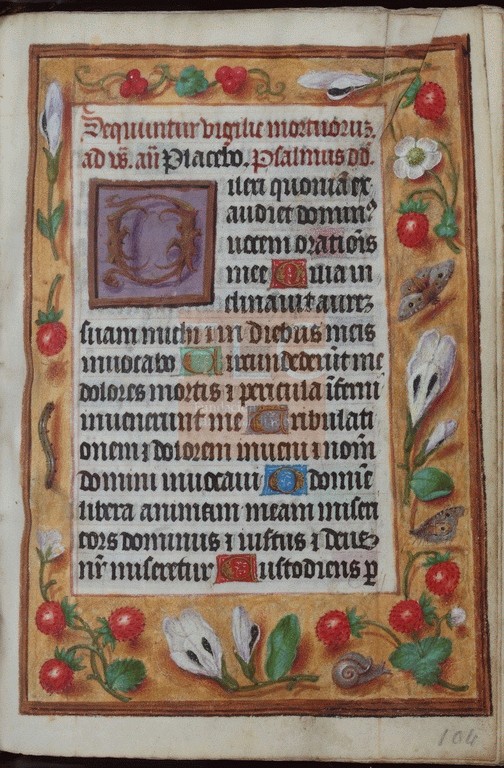 Sequuntur vigilie mortuoruz.
ad vs̄. an̄ Placebo. Psalmus dd.
Dilexi quoniā ex
audiet dominꝰ
uocem oratiōis
mee Quia in
clinauit aurez
suam michi ⁊ in diebus meis
inuocabo Circundederūt me
dolores mortis ⁊ pericula īferni
inuenerunt me Tribulati
onem ⁊ dolorem inueni ⁊ nom̄
domini inuocaui O domiē
libera animam meam miseri
cors dominus ⁊ iustus ⁊ deus
nr̄ miseretur Custodiens p
104